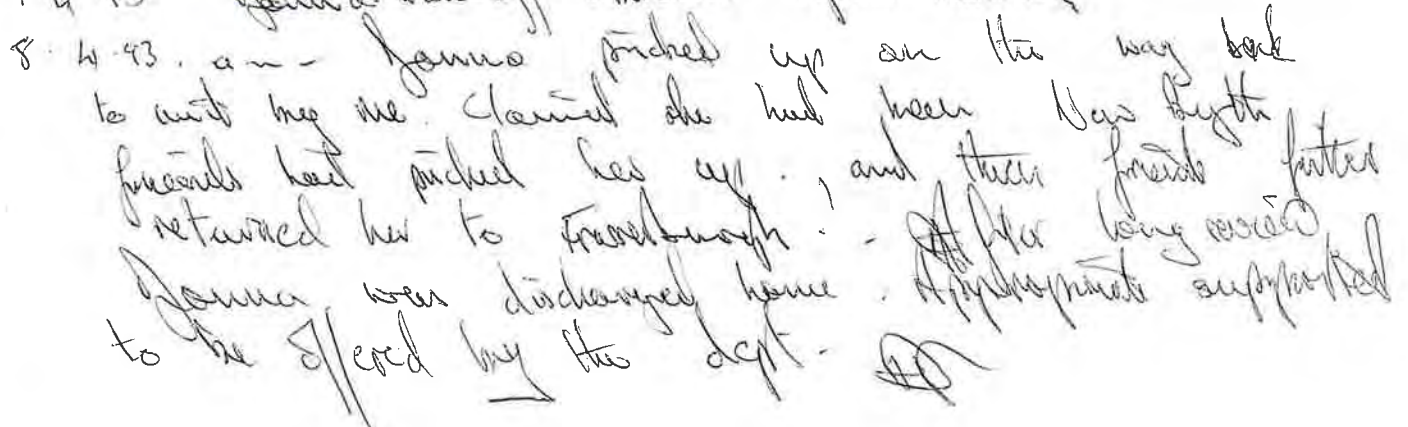 Donna
8.4.93. am - Donna picked up on the way back
to unit by me. Claimed she had been New Byth
friends had picked her up, and then friends father
returned her to Fraserburgh! - After long review
Donna was discharged home. Appropriate supported
to be offered by the dept.